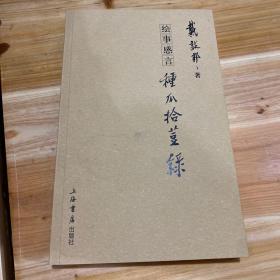 戴敦邦 著
绘事感言
種瓜拾荳錄
上海书店出版社